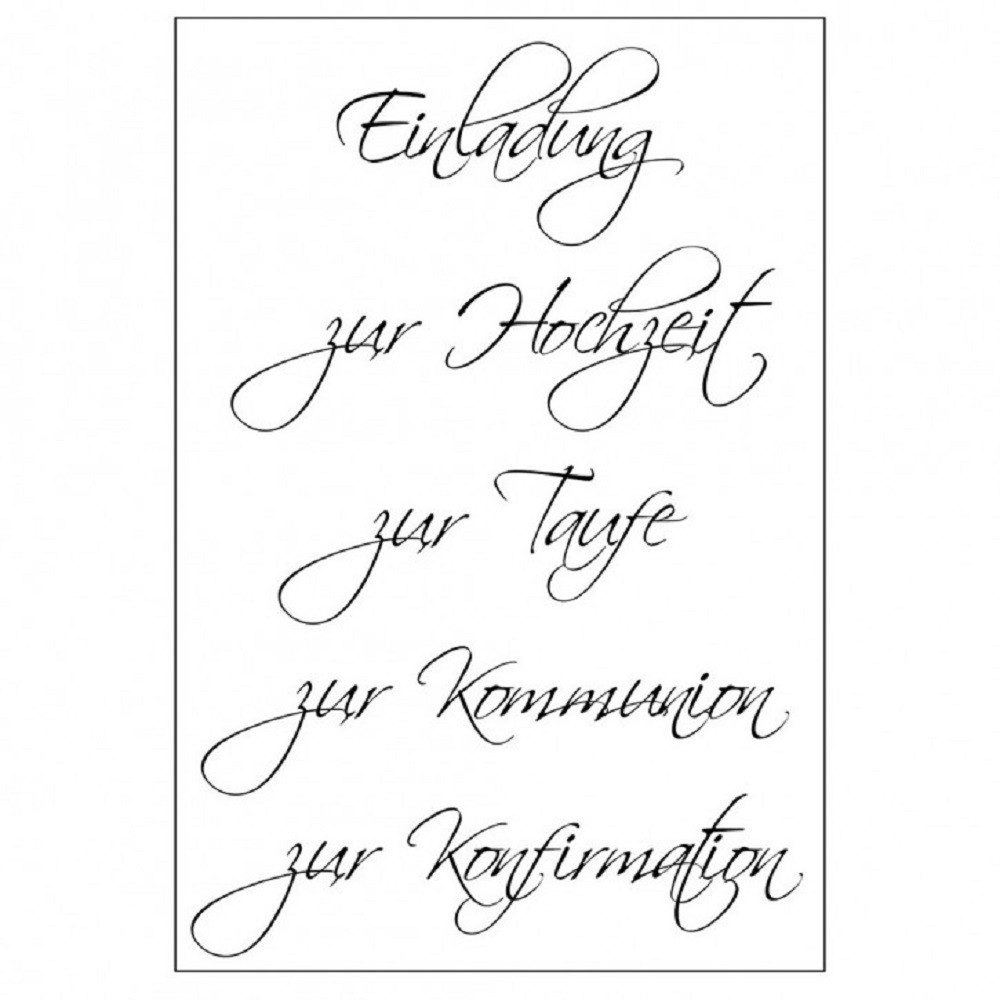 Einladung
zur Hochzeit
zur Taufe
zur Kommunion
zur Konfirmation